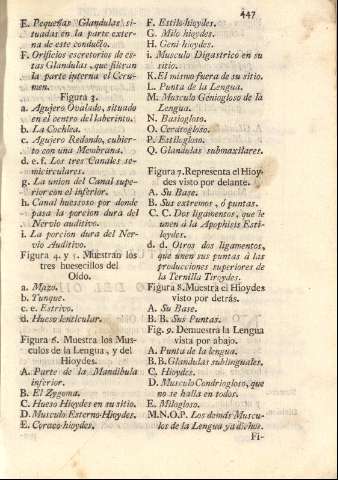 447
E. Pequeñas Glandulas si-
tuadas en la parte exter-
na de este conducto.
F. Orificios escretorios de es-
tas Glandulas, que filtran
la parte interna el Ceru-
men.
Figura 3.
a. Agujero Ovalado, situado
en el centro del laberinto.
b. La Cochlea.
c. Agujero Redondo, cubier-
to con una Membrana.
d. e. f. Los tres Canales se-
micirculares.
g. La union del Canal supe-
rior con el inferior.
h. Canal huessoso por donde
pasa la porcion dura del
Nervio auditivo.
i. La porcion dura del Ner-
vio Auditivo.
Figura 4. y 5. Muestran los
tres huesecillos del
Oldo.
a. Mazo.
b. Yunque.
c. e. Estrivo.
d. Hueso lenticular.
Figura 6. Muestra los Mus-
culos de la Lengua, y del
Hioydes.
A. Parte de la Mandibula
inferior.
B. El Zygoma.
C. Hueso Hioydes en su sitio.
D. Musculo Esterno-Hioydes.
E. Coraco-hioydes.
F. Estilo-hioydes.
G. Milo hioydes.
H. Geni hioydes.
i. Musculo Digastrico en su
sitio.
K. El mismo fuera de su sitio.
L. Punta de la Lengua.
M. Musculo Geniogloso de la
Lengua.
N. Basiogloso.
O. Ceratogloso.
P. Estilogloso.
Q. Glandulas submaxilares.
Figura 7. Representa el Hioy-
des visto por delante.
A. Su Base.
B. Sus extremos, ó puntas.
C. C. Dos ligamentos, que le
unen á la Apophisis Esti-
loydes.
d. d. Otros dos ligamentos,
que unen sus puntas á las
producciones superiores de
la Ternilla Tiroydes.
Figura 8. Muestra el Hioydes
visto por detrás.
A. Su Base.
B. B. Sus Puntas.
Fig. 9. Demuestra la Lengua
vista por abajo.
A. Punta de la lengua.
B. B. Glandulas sublinguales.
C. Hioydes.
D. Musculo Condriogloso, que
no se halla en todos.
E. Milogloso.
M.N.O.P. Los demás Muscu-
los de la Lengua ya dichos.
Fi-